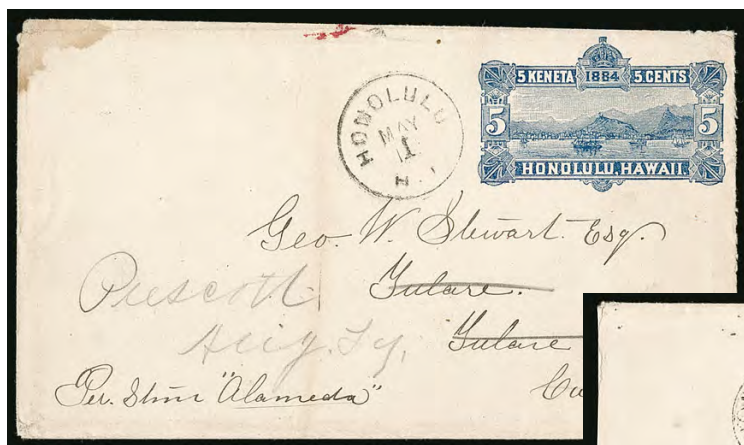 5 KENETA 1884 5 CENTS
5 5
HONOLULU, HAWAII.
HONOLULU
MAY
H.
Geo. W. Stewart. Esq.
Tulare.
Prescott
Tulare
Ariz. Ty.
Per. Stmr "Alameda"